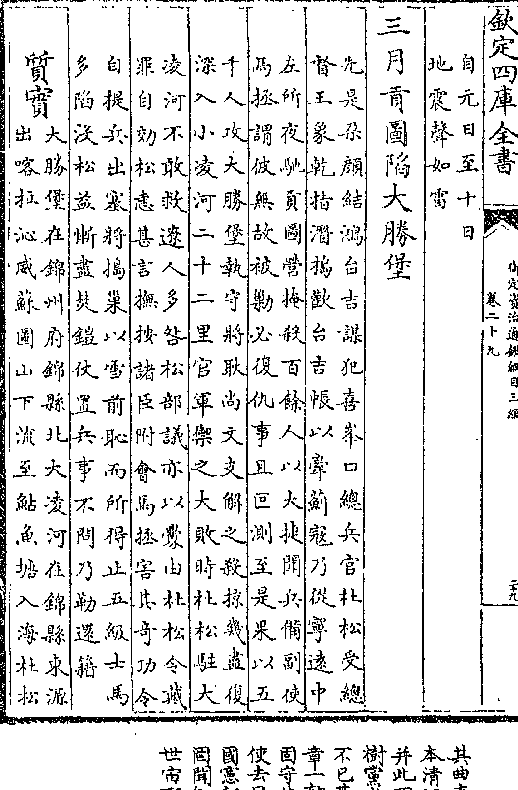 欽定四庫全書
御定資治通鑑綱目三編
卷二十九
自元日至十日
地震聲如雷
三月貢圖陷大勝堡
先是朶顔結鴻台吉謀犯喜峯口總兵官杜松受總
督王象乾指潛搗歡台吉帳以牽薊寇乃從寧遠中
左所夜馳貢圖營掩殺百餘人以大捷聞兵備副使
馬拯謂彼無故被勦必復仇事且叵測至是果以五
千人攻大勝堡執守將耿尚文支解之殺掠幾盡復
深入小凌河二十二里官軍禦之大敗時杜松駐大
凌河不敢救遼人多咎松部議亦以釁由杜松令戴
罪自効松恚甚言撫按諸臣附會馬拯害其奇功令
自提兵出塞將搗巢以雪前恥而所得止五級士馬
多陷沒松益慚盡焚鎧仗置兵事不問乃勒還籍
質實 大勝堡在錦州府錦縣北大凌河在錦縣東源
出喀拉沁威蘇圖山下流至鮎魚塘入海杜松
其曲
本清
并此
樹黨
不已
章一
固守
使去
國憲
固聞
世宙